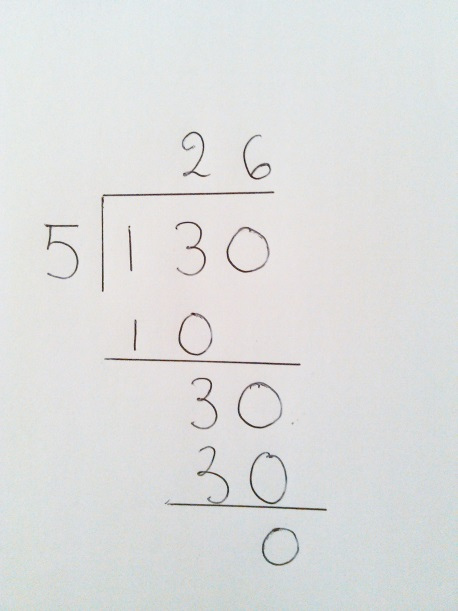 26
5 130
10
30
30
0